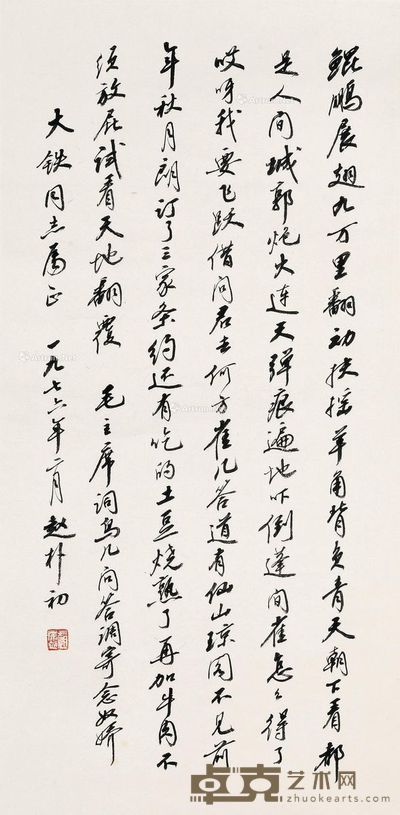 鲲鹏展翅九万里翻动扶摇羊角背负青天朝下看都
是人间城郭炮火连天弹痕遍地吓倒蓬间雀怎么得了
哎呀我要飞跃借问君去何方雀儿答道有仙山琼阁不见前
年秋月朗订了三家条约还有吃的土豆烧熟了再加牛肉不
须放屁试看天地翻覆 毛主席词鸟儿问答调寄念奴娇
大铁同志属正 一九七六年二月 赵朴初
卓克艺术网
zhuokearts.com